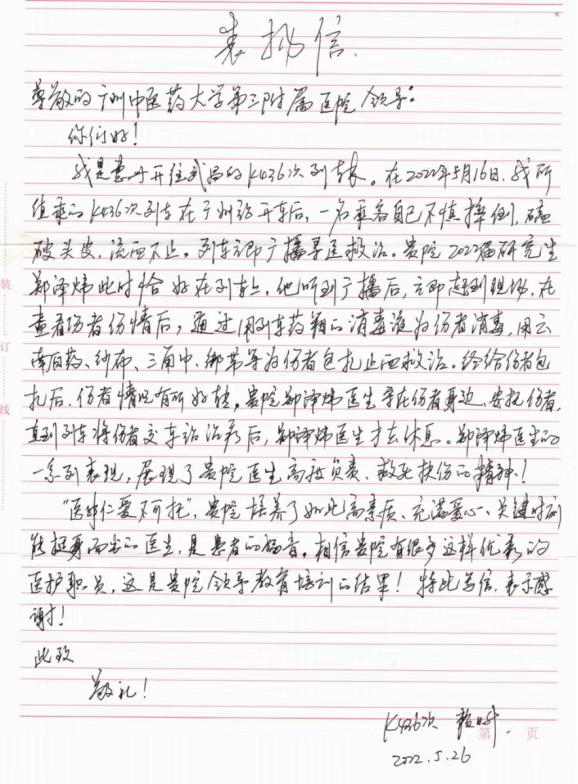 表扬信
尊敬的广州中医药大学第三附属医院领导:
你们好!
我是惠州开往武昌的K436次列车长。在2022年5月16日,我所
值乘的K436次列车在广州站开车后,一名乘客自己不慎摔倒,磕
破头皮,流血不止。列车立即广播寻医救治。贵院2022届研究生
郑泽炜此时恰好在列车上,他听到广播后,立即赶到现场,在
查看伤者伤情后,通过用列车药箱的消毒液为伤者消毒,用云
南白药、纱布、三角巾、绑带等为伤者包扎止血救治。经给伤者包
扎后,伤者情况有所好转。贵院郑泽炜医生守在伤者身边、安抚伤者,
直到列车将伤者交车站治疗后,郑泽炜医生才去休息。郑泽炜医生的
一系列表现,展现了贵院医生高度负责、救死扶伤的精神!
"医者仁爱不可托",贵院培养了如此高素质、充满爱心、关键时刻
能挺身而出的医生,是患者的福音。相信贵院有很多这样优秀的
医护职员,这是贵院领导教育培训的结果!特此写信,表示感
谢!
此致
敬礼!
K436次
2022.5.26
第 页
装
订
线